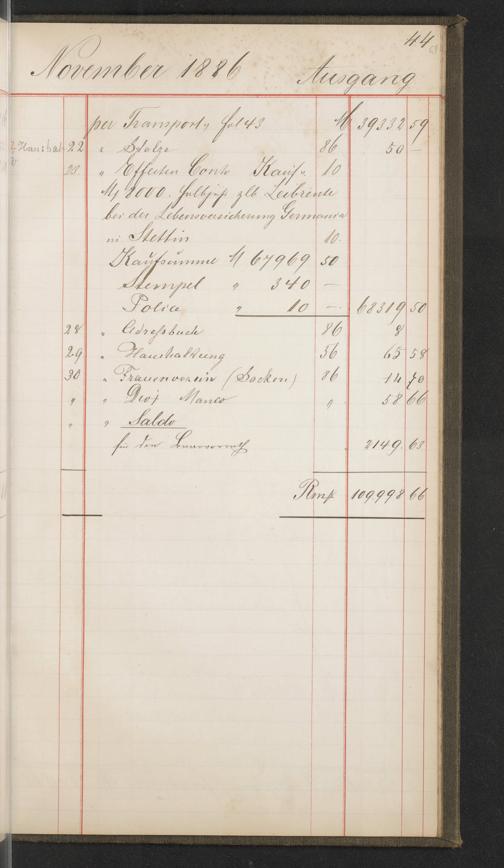 44
November 1886 Ausgang
per Transport fol 43 M 39332 59
22 " Stolze 86 50 —
" Effecten Conto Kauf 10
M 2000. halbj. zlb Leibrente
bei der Lebensversicherung Germania
in Stettin 10.
Kaufsumme M 67969 50
Stempel " 340 —
Police " 10 — 68319 50
28 " Adressbuch 86 8
29 " Haushaltung 56 65 58
30 " Frauenverein (Socken) 86 14 70
" " Div. Manco " 58 66
" " Saldo
für den 2149. 63
Rmp 109998 66